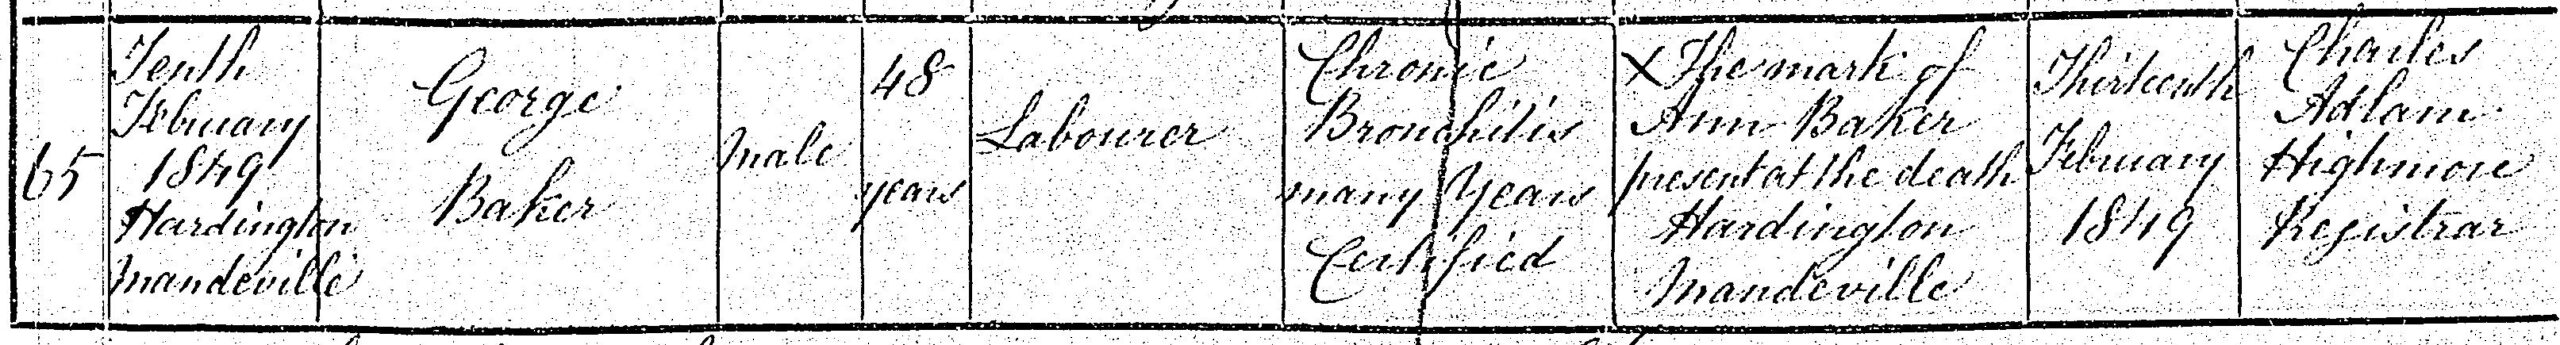 65
Tenth
February
1849
Hardington
Mandeville
George
Baker
Male
48
years
Labourer
Chronic
Bronchitis
many Years
Certified
X The mark of
Ann Baker
present at the death
Hardington
Mandeville
Thirteenth
February
1849
Charles
Adlam
Highmore
Registrar